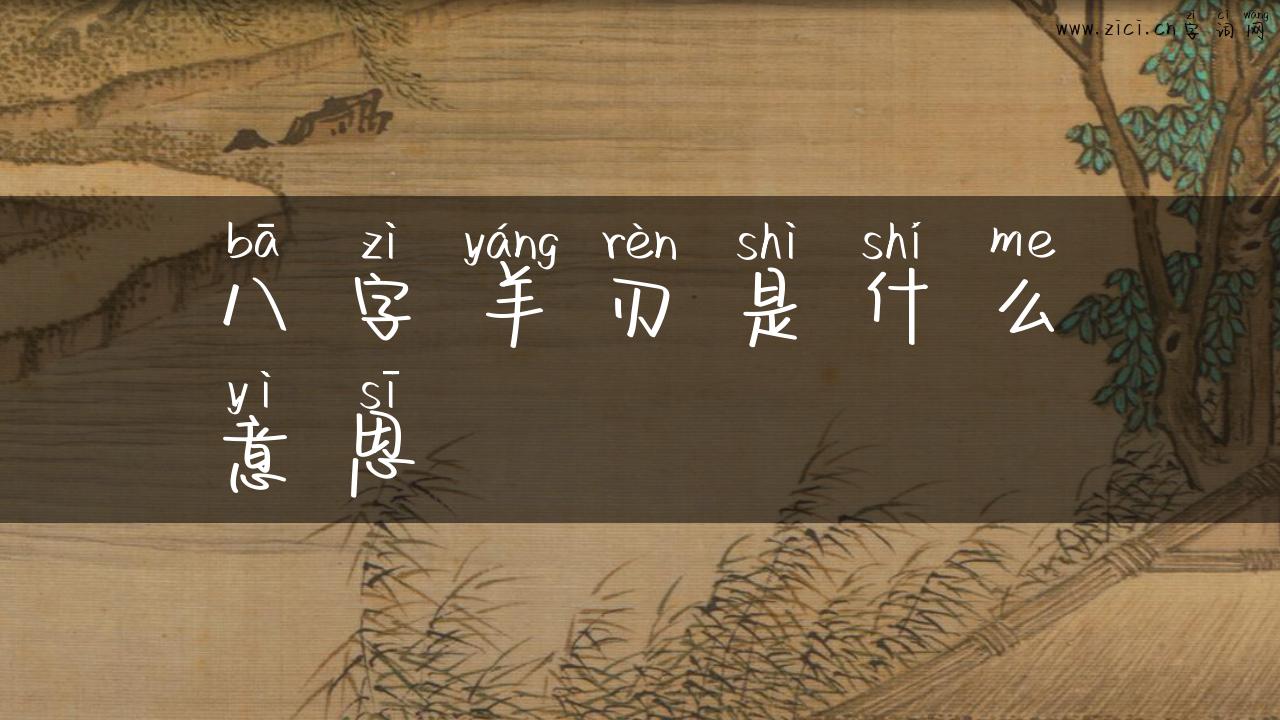 zì cí wǎng
www.zici.cn字词网
bā zì yáng rèn shì shí me
八字羊刃是什么
yì sī
意思